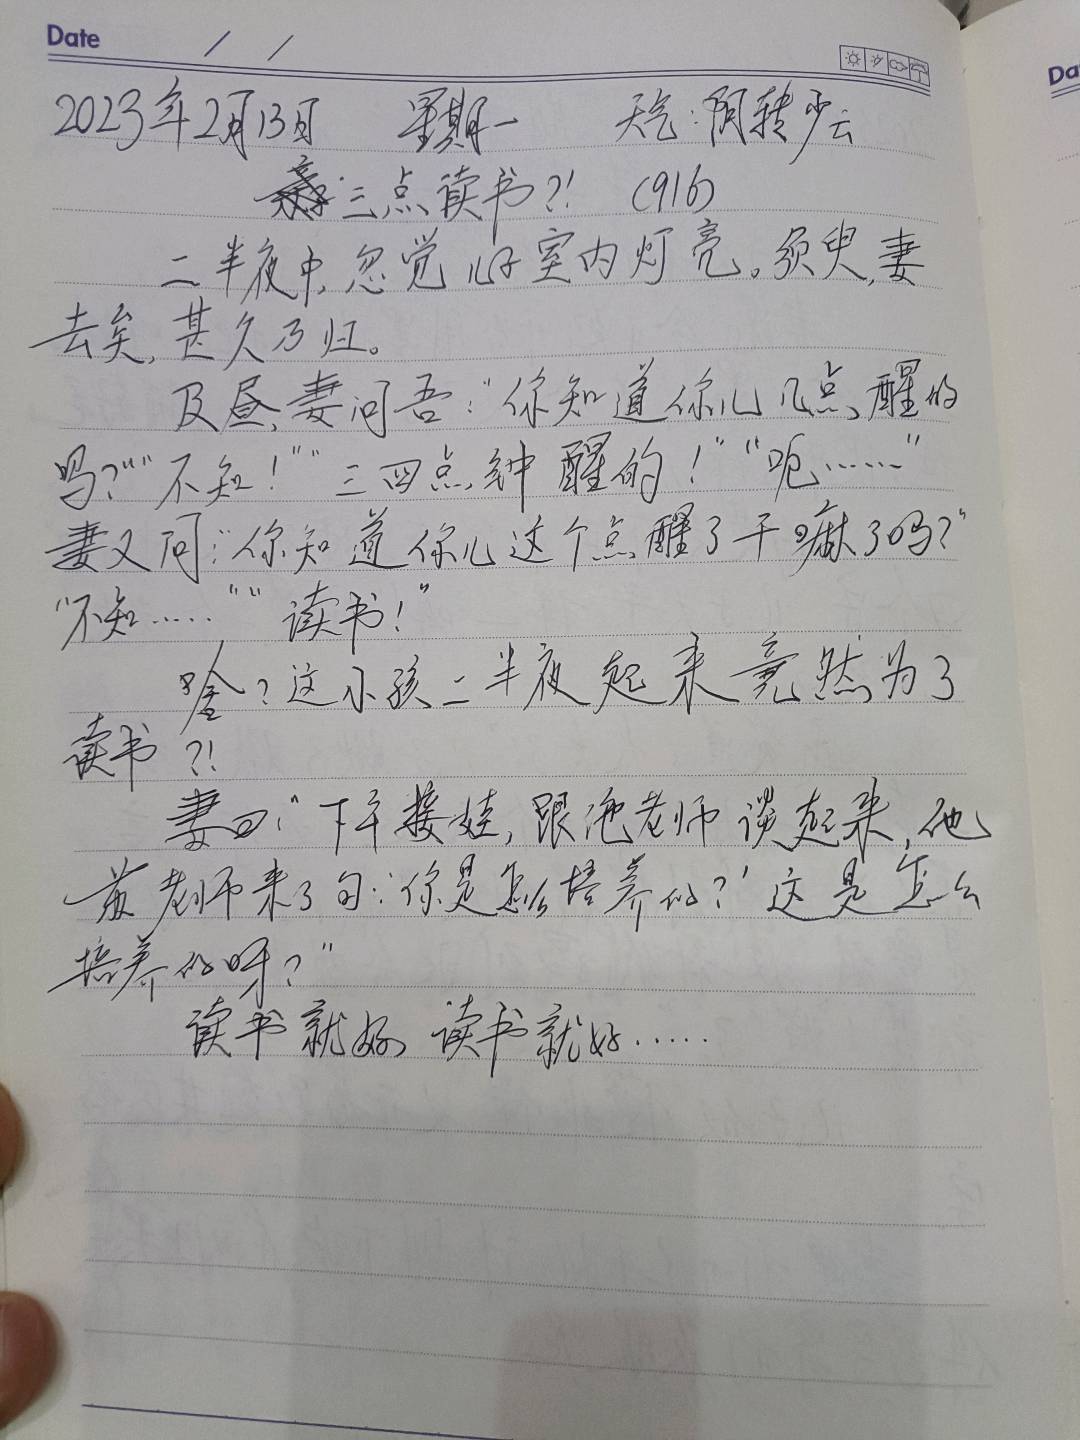 Date / /
2023年2月13日 星期一 天气:阴转少云
三点读书?! (916)
二半夜中,忽觉儿子室内灯亮。须臾,妻
去矣,甚久乃归。
及昼,妻问吾:“你知道你儿几点醒的
吗?”“不知!”“三四点钟醒的!”“呃……”
妻又问:“你知道你儿这个点醒了干嘛了吗?”
“不知……”“读书!”
啥?这小孩二半夜起来竟然为了
读书?!
妻曰:“下午接娃,跟绝老师谈起来,他
黄老师来了句:‘你是怎么培养的?’这是怎么
培养的呀?”
读书就好,读书就好……
Da